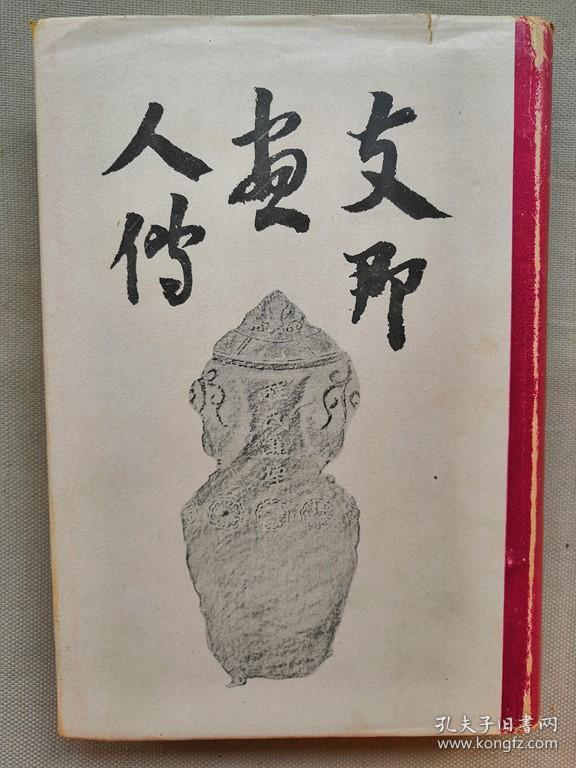 支那
畫
人傳
孔夫子旧書网
www.kongfz.com